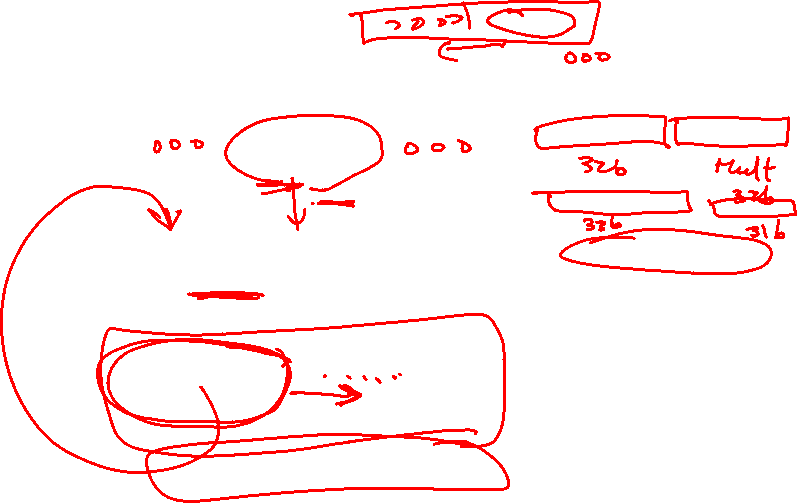 0000
000
000 000
32b Mult
32b
32b 31b